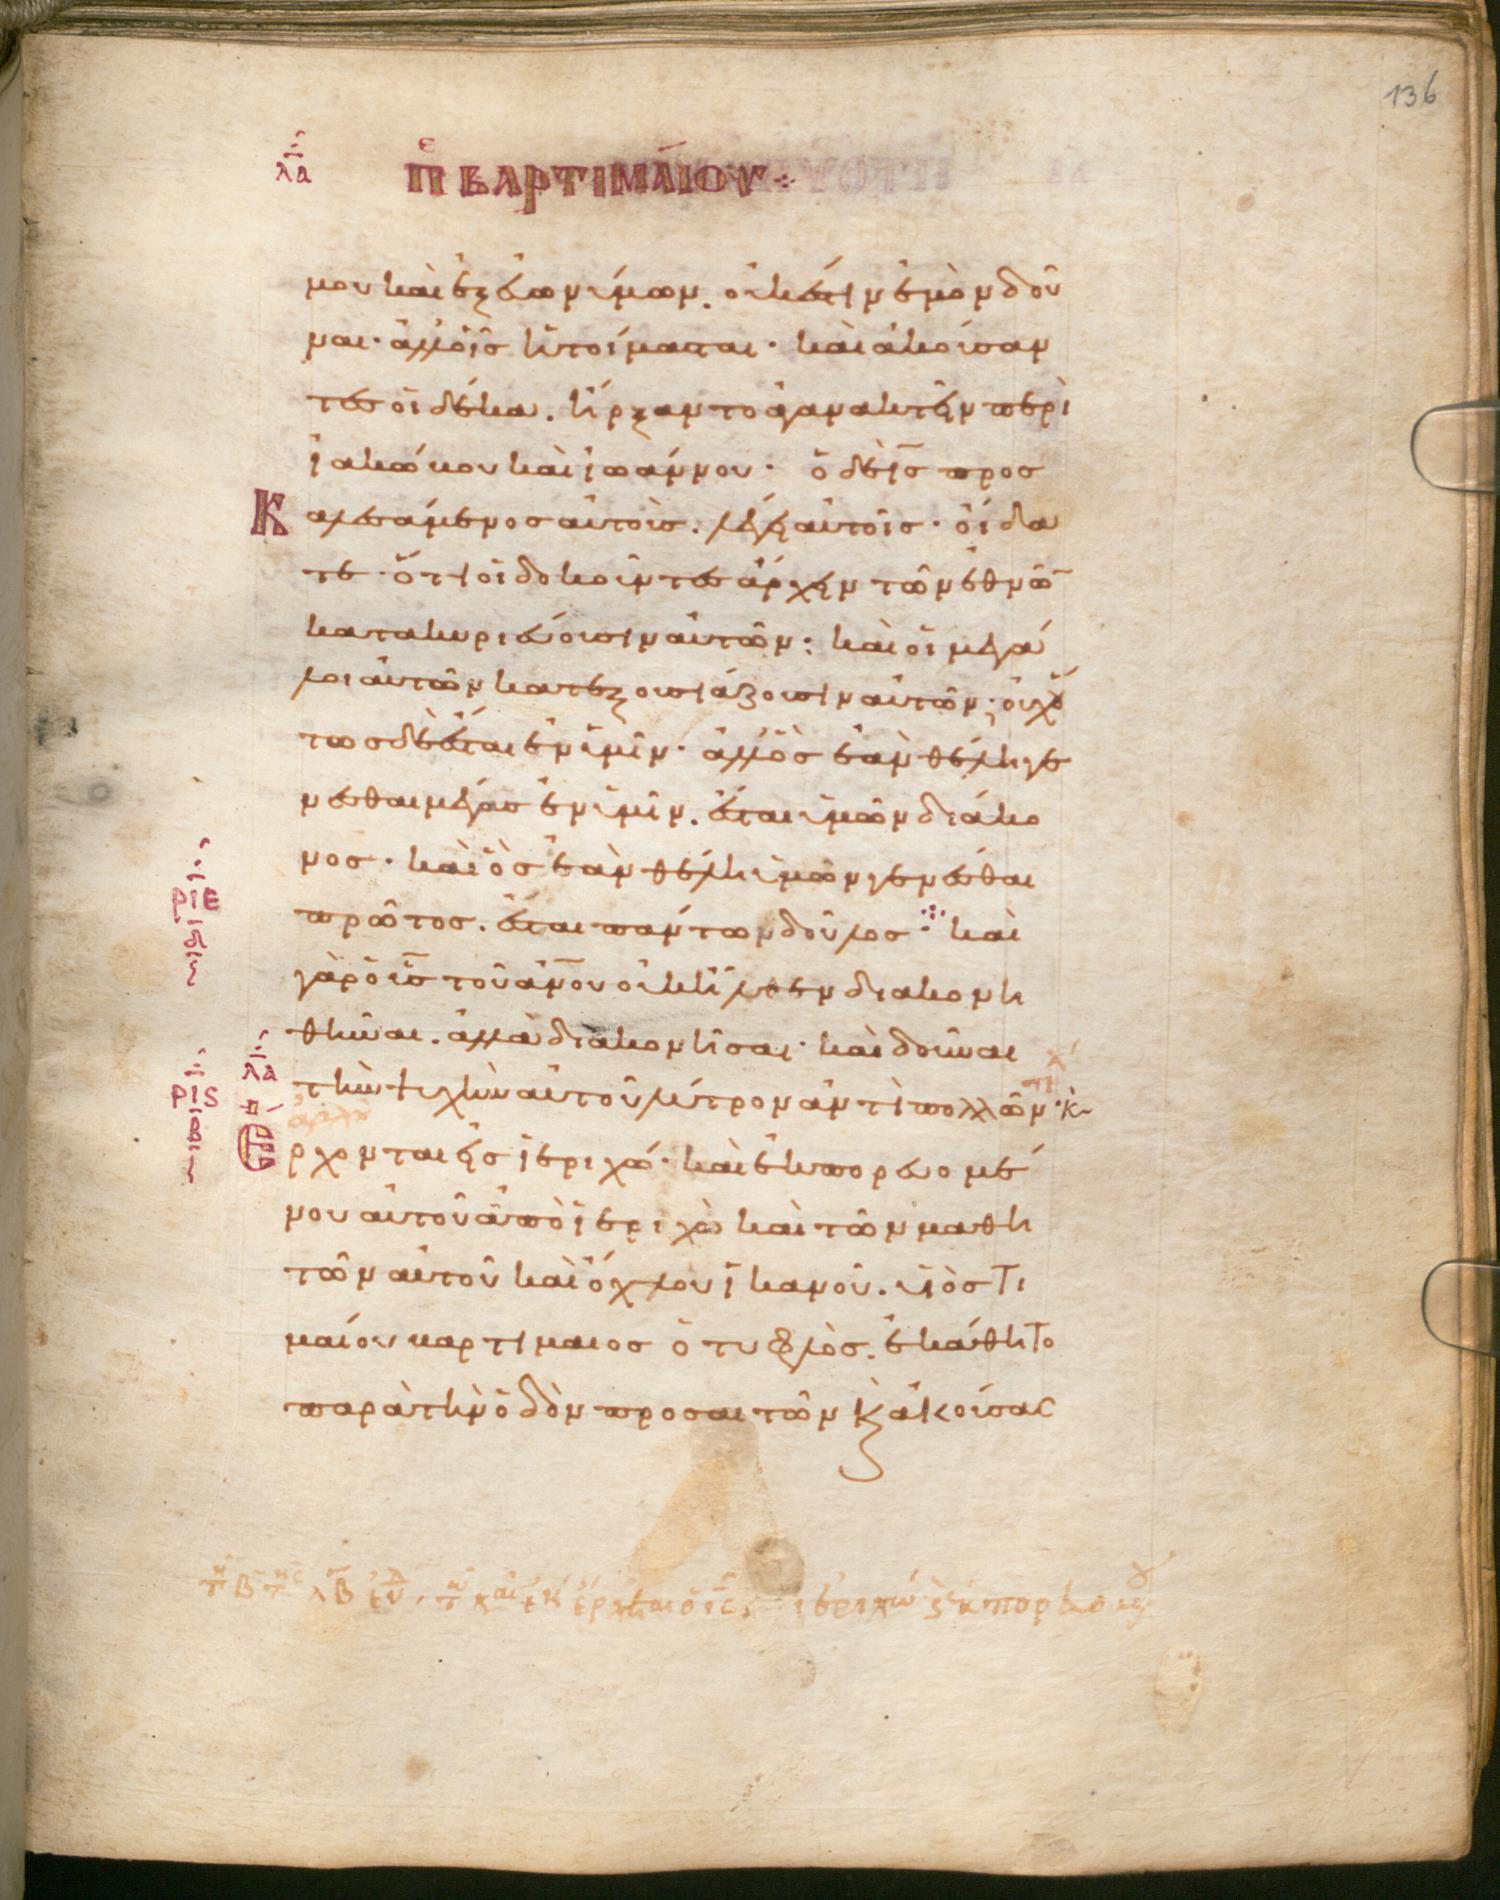 136
λα πε βαρτιμαίου
μου καὶ ἐξ εὐωνύμων. οὐκ ἔστιν ἐμὸν δοῦ
ναι· ἀλλ' οἷς ἡτοίμασται· καὶ ἀκούσαν
τες οἱ δέκα. ἤρξαντο ἀγανακτεῖν περὶ
ἰακώβου καὶ ἰωάννου· ὁ δὲ ις προσ
Κ αλεσάμενος αὐτοὺς. λέγει αὐτοῖς· οἴδα
τε· ὅτι οἱ δοκοῦντες ἄρχειν τῶν ἐθνῶ
κατακυριεύουσιν αὐτῶν· καὶ οἱ μεγά
λοι αὐτῶν κατεξουσιάζουσιν αὐτῶν· οὐχ οὕ
τως δὲ ἔσται ἐν ὑμῖν· ἀλλ' ὃς ἐὰν θέλη γε
νέσθαι μέγας ἐν ὑμῖν. ἔσται ὑμῶν διάκο
νος· καὶ ὃς ἐὰν θέλη ὑμῶν γενέσθαι
ριε πρῶτος. ἔσται πάντων δοῦλος· καὶ
γὰρ ὁ υς τοῦ ανου οὐκ ἦλθεν διακονη
θῆναι. ἀλλὰ διακονῆσαι· καὶ δοῦναι
ρις λα τὴν ψυχὴν αὐτοῦ λύτρον ἀντὶ πολλῶν· κ
Ε ρχονται εἰς ἱεριχώ· καὶ ἐκπορευομέ
νου αὐτοῦ ἀπὸ ἱεριχὼ καὶ τῶν μαθη
τῶν αὐτοῦ καὶ ὄχλου ἱκανοῦ. υἱὸς τι
μαίου βαρτιμαιος ὁ τυφλὸς. ἐκάθητο
παρὰ τὴν ὁδὸν προσαιτῶν κ ἀκούσας